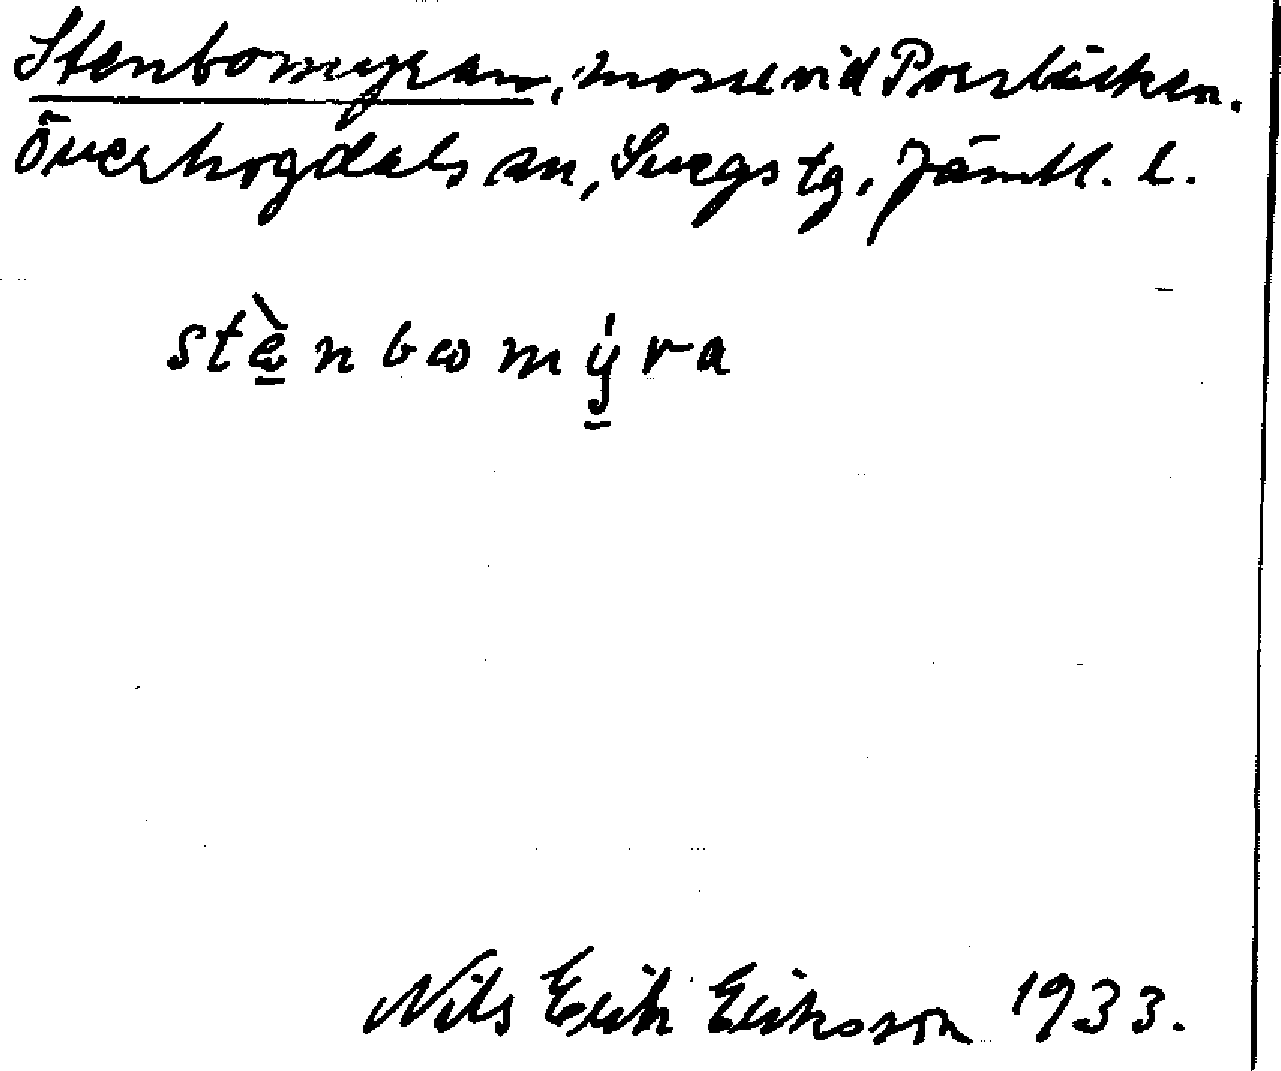 Stenbomyran, mosse vid Porsbäcken.
Överhogdals sn, Svegs tg, Jämtl. l.
stènbωmýra
Nils Erik Eriksson 1933.